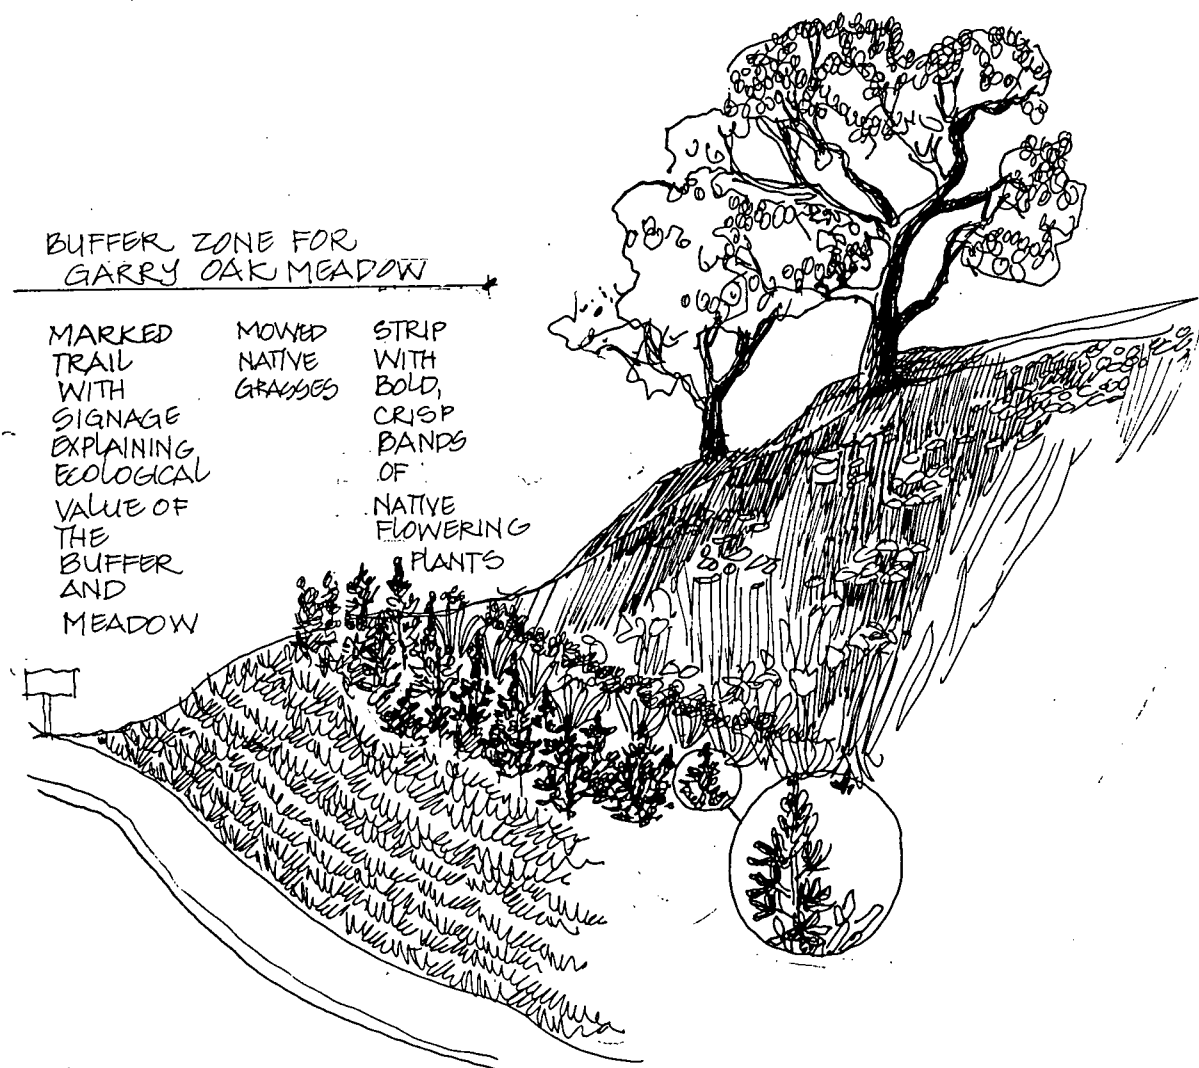 BUFFER ZONE FOR
GARRY OAK MEADOW
MARKED
TRAIL
WITH
SIGNAGE
EXPLAINING
ECOLOGICAL
VALUE OF
THE
BUFFER
AND
MEADOW
MOWED
NATIVE
GRASSES
STRIP
WITH
BOLD,
CRISP
BANDS
OF
NATIVE
FLOWERING
PLANTS